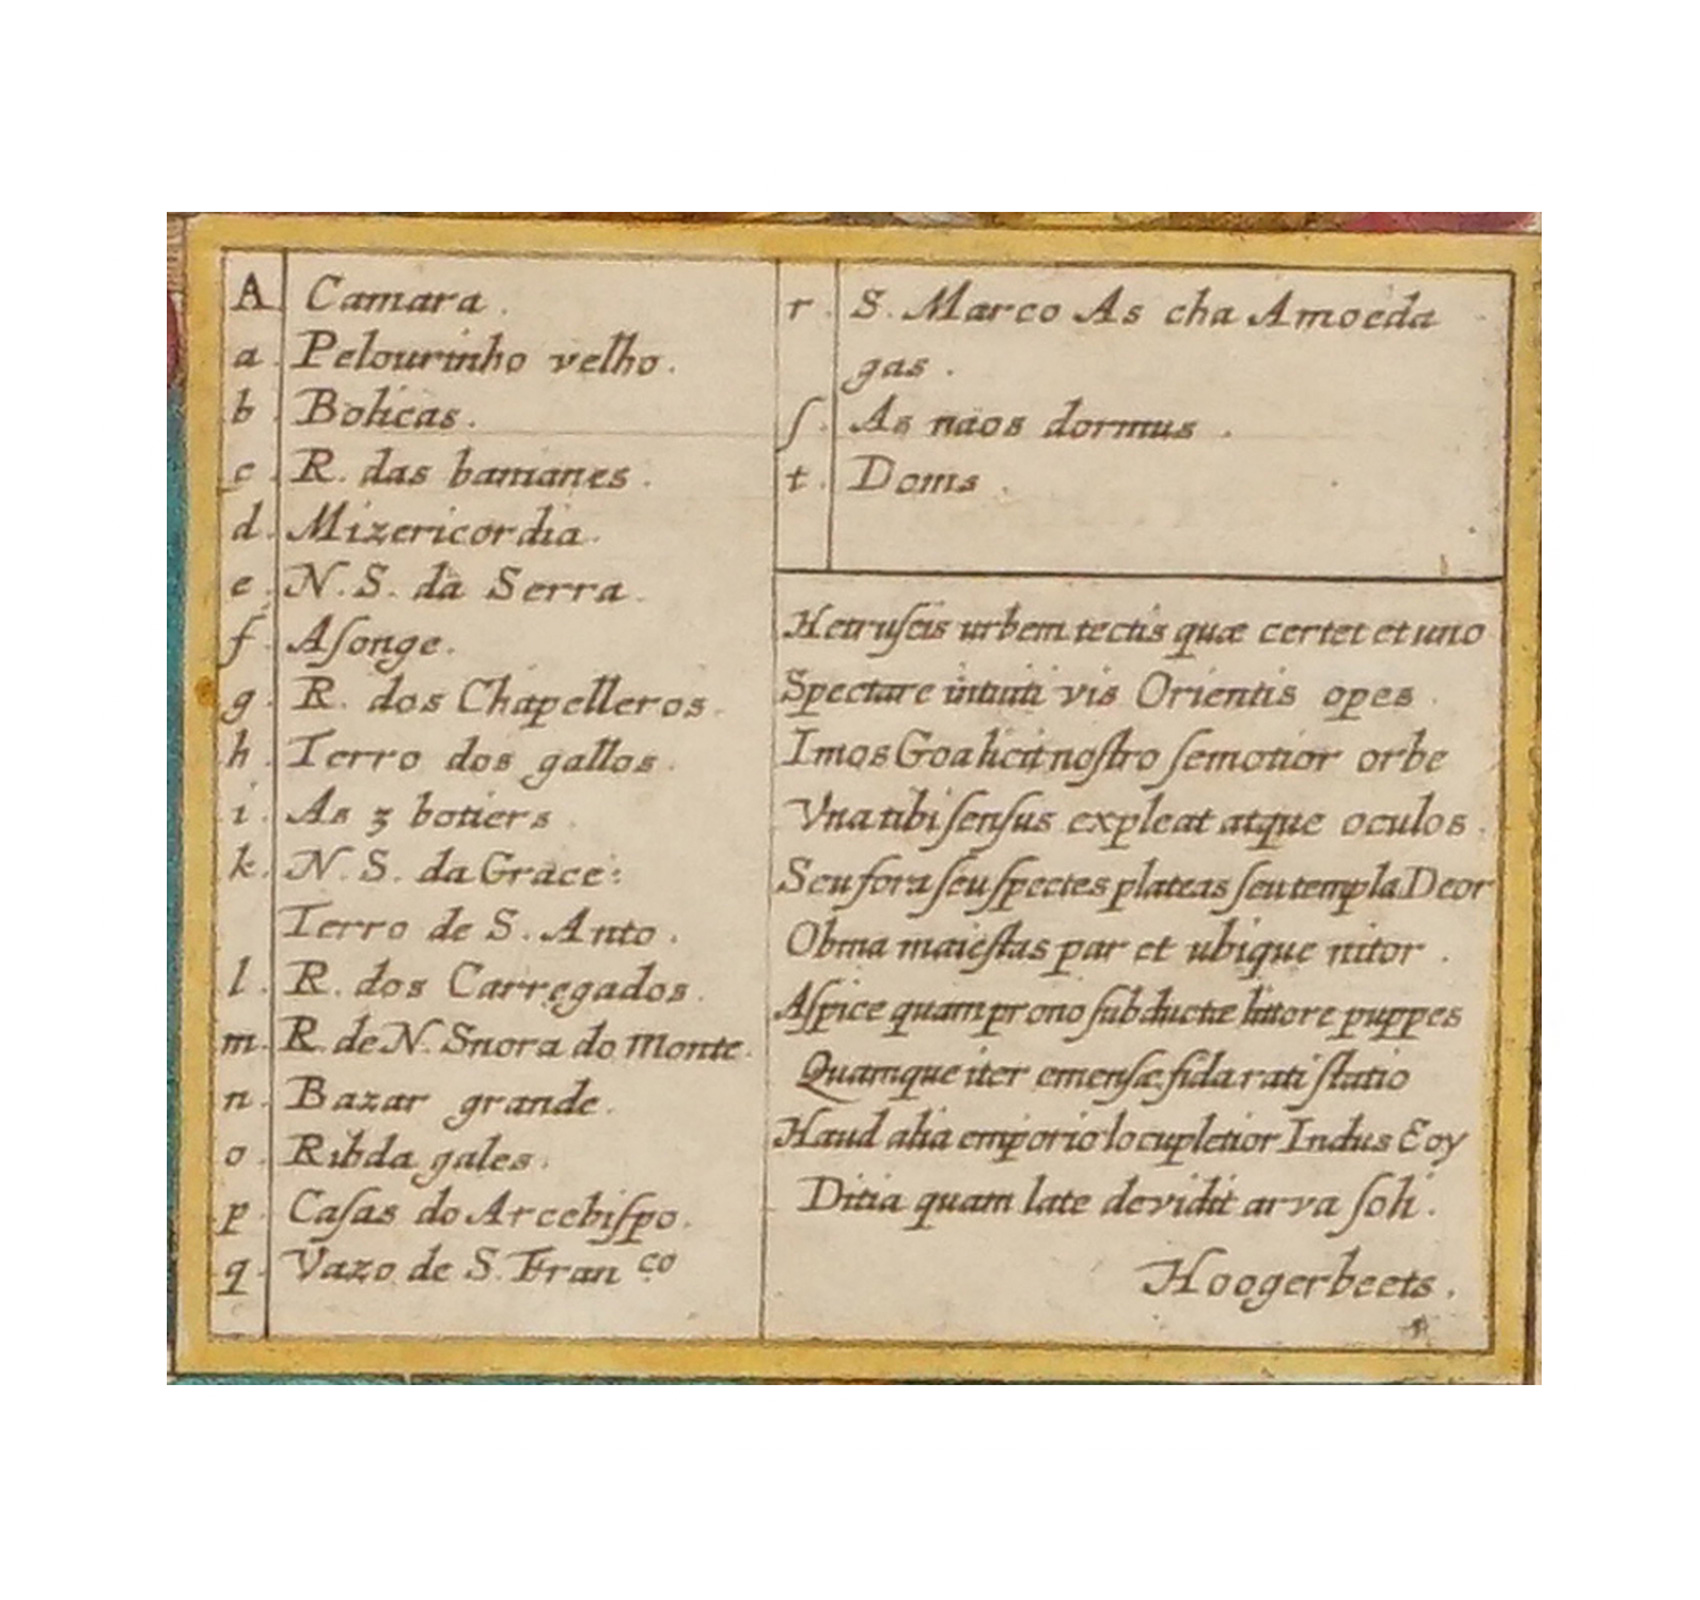 A Camara.
a. Pelourinho velho.
b. Boticas.
c. R. das bamanes.
d. Mizericordia.
e. N. S. da Serra.
f. Aſonge.
g. R. dos Chapelleros.
h. Terro dos gallos.
i. As 3 botiers.
k. N. S. da Grace:
Terro de S. Anto.
l. R. dos Carregados.
m. R. de N. Snora do Monte.
n. Bazar grande.
o. Ribda gales.
p. Caſas do Arcebiſpo.
q. Vazo de S. Fran co
r. S. Marco As cha Amoeda
gas.
ſ. As naos dormus.
t. Doms.
Hetruſcis urbem tectis quæ certet et uno
Spectare intuiti vis Orientis opes.
Imos Goa licit noſtro ſemotior orbe
Vna tibi ſenſus expleat atque oculos.
Seu fora ſeu ſpectes plateas ſeu templa Deor
Obvia maieſtas par et ubique nitor.
Aſpice quam prono ſubductæ littore puppes
Quamque iter emenſæ fida rati ſtatio
Haud alia emporio locupletior Indus Eoy
Ditia quam late devidit arva ſoli.
Hoogerbeets.